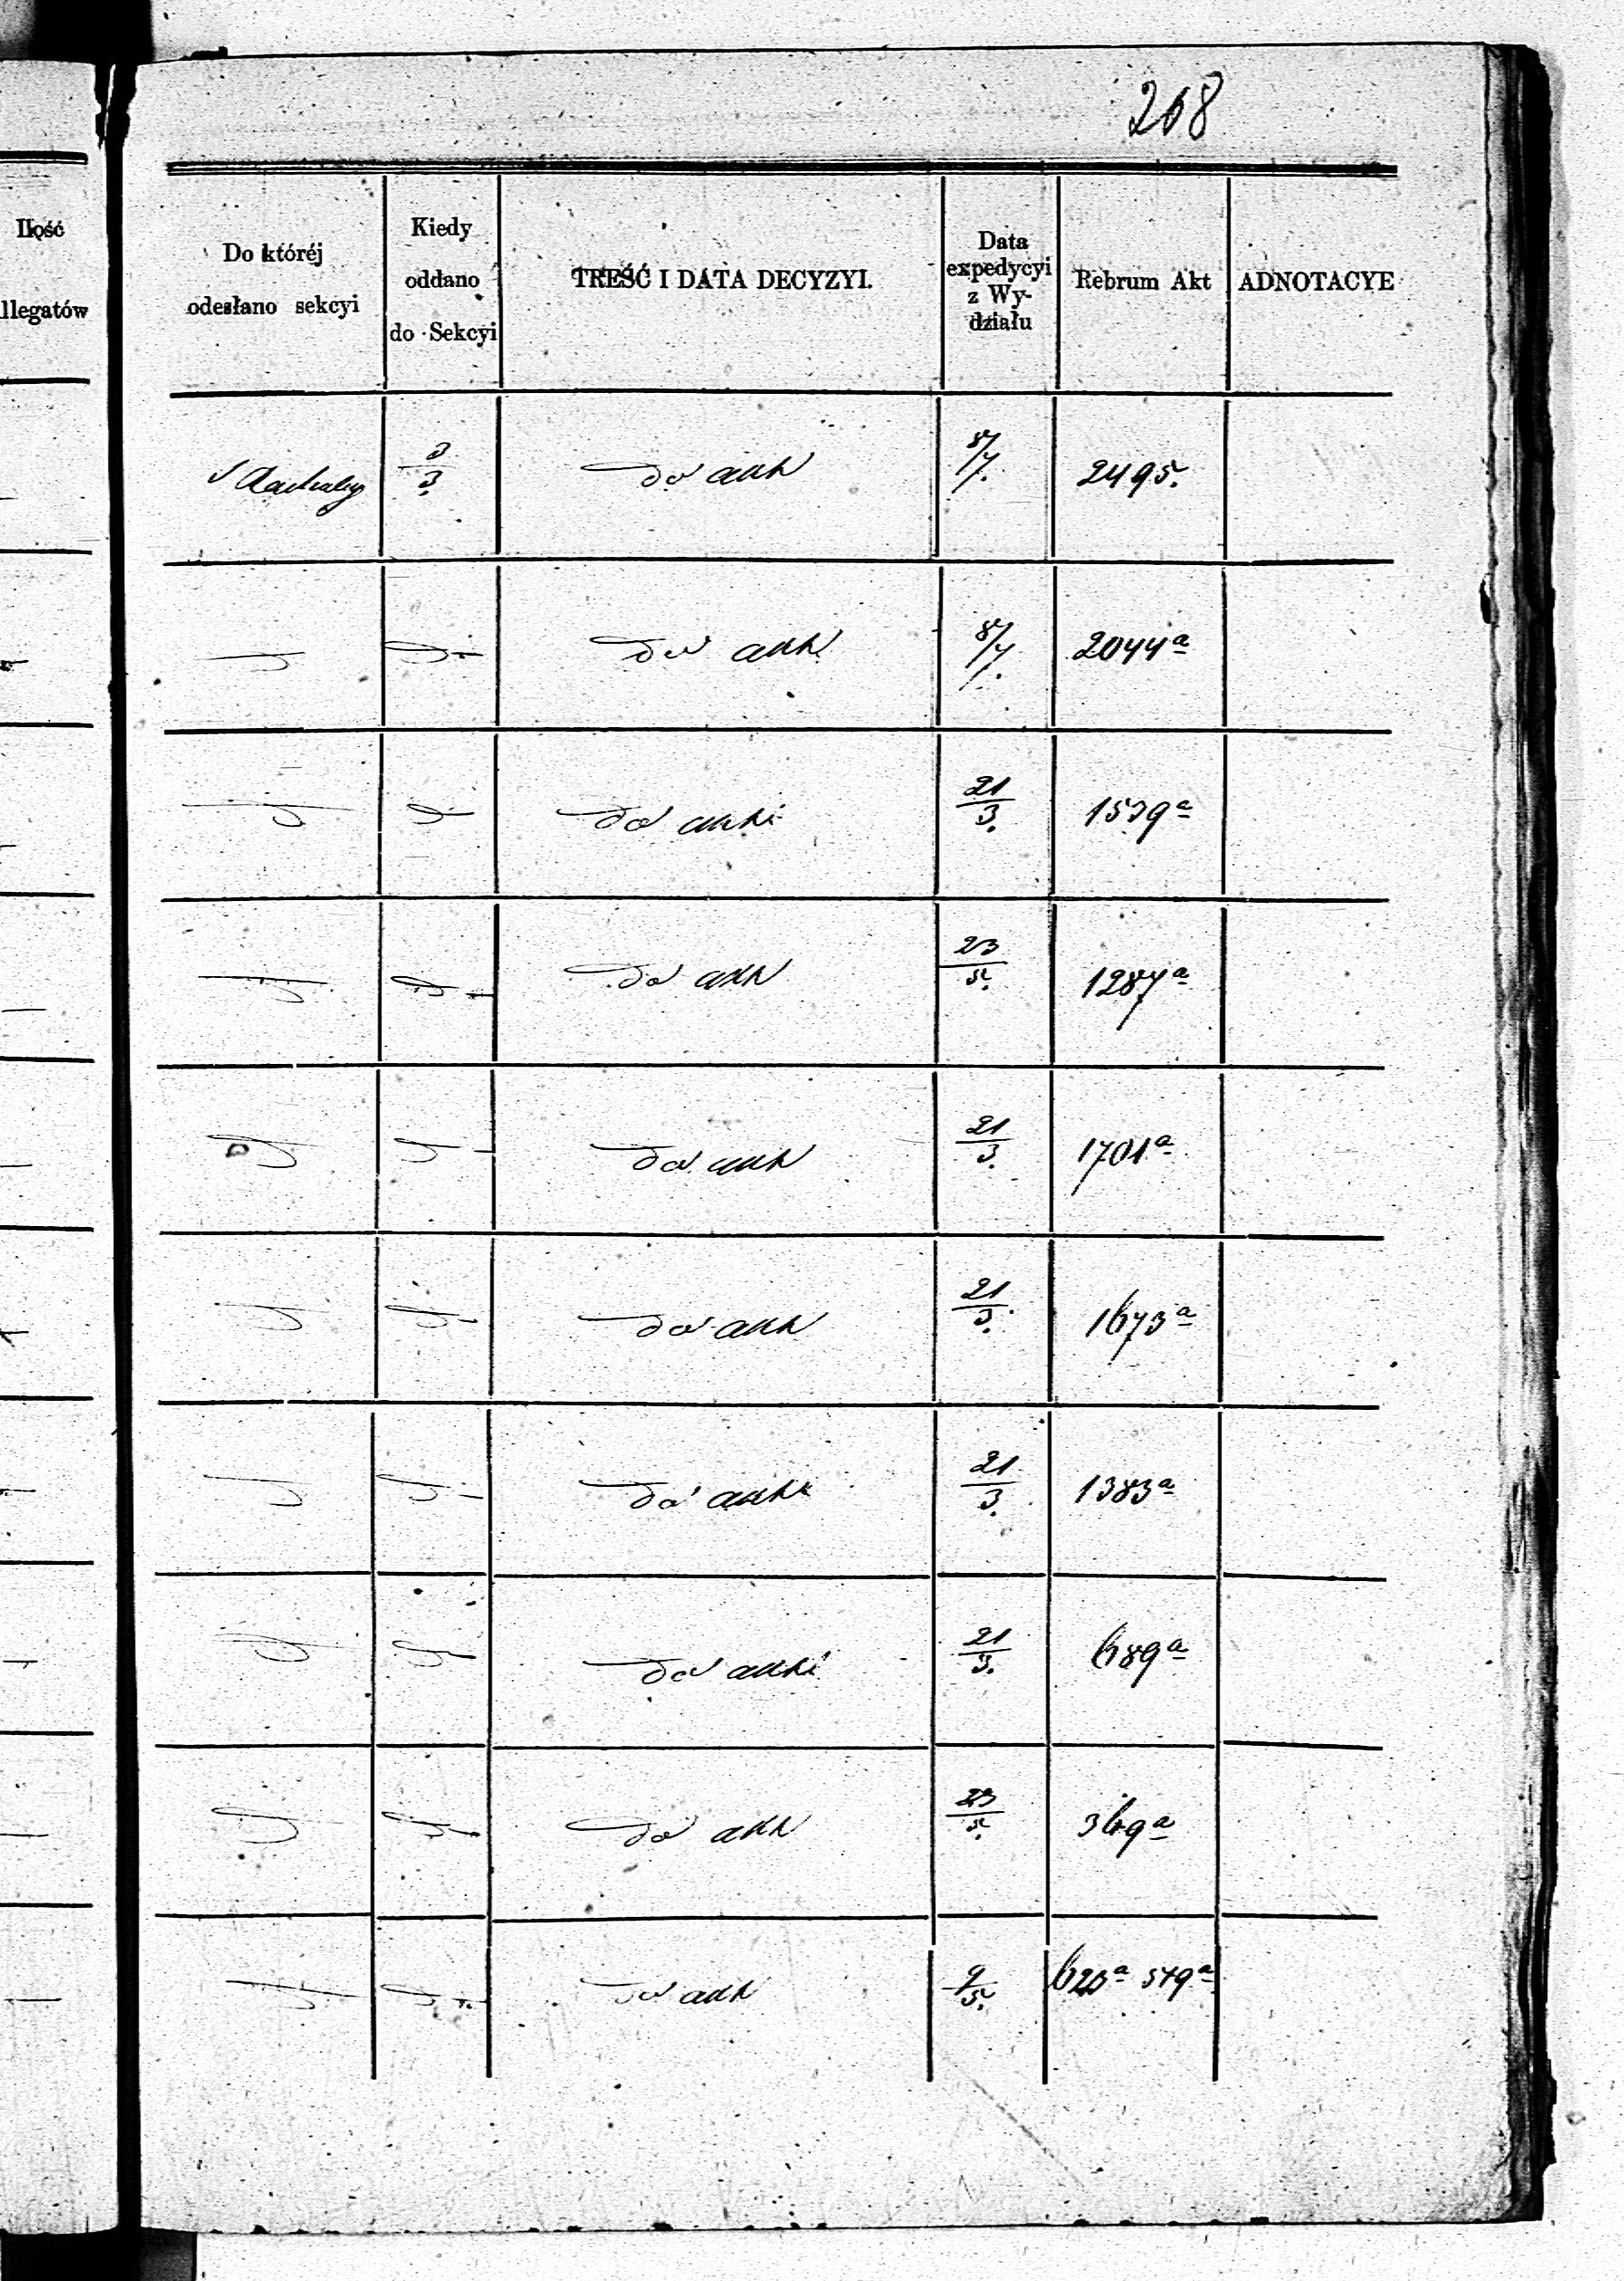 268
Ilość
llegatów
Do któréj
odesłano sekcyi
Kiedy
oddano
do Sekcyi
TREŚĆ I DATA DECYZYI.
Data
expedycyi
z Wy-
działu
Rebrum Akt
ADNOTACYE
3/3. do akt 8/7. 2495.
do akt 8/7. 2044a
do akt 21/3. 1539a
do akt 23/5. 1287a
do akt 21/3. 1701a
do akt 21/3. 1673a
do akt 21/3. 1383a
do akt 21/3. 689a
do akt 23/5. 369a
do akt 9/5. 579a